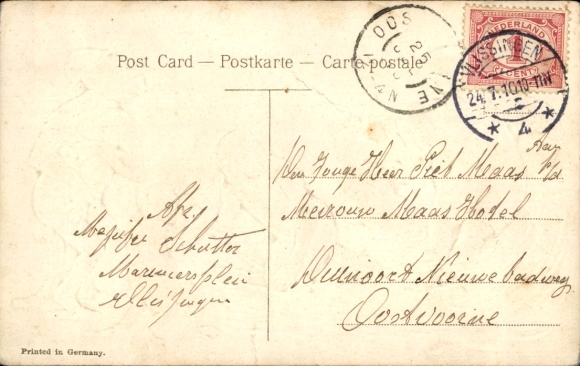 Post Card — Postkarte — Carte postale
NEDERLAND
1
CENT
VLISSINGEN
24.7.10.10-11V
4
OOS
25
Den Jonge Heer Piet Maas
Aan
p/a
Mevrouw Maas Hotel
Duinoord Nieuwe badweg
Oostvoorne
Afz
Schutter
Marinierplein
Vlissingen
Printed in Germany.